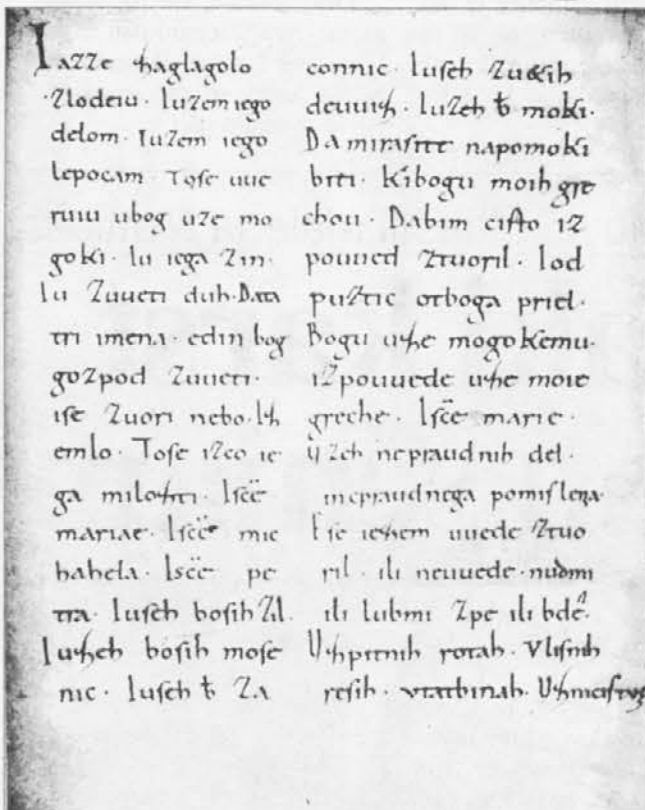 Iazze zaglagolo
zlodeiu. Iuzem iego
delom. Iuzem iego
lepocam. Tose uue
ruiu ubog uze mo
goki. Iu iega zin.
Iu zuueti duh. Data
tri imena. edin bog
gozpod zuueti.
ise zuori nebo. Iz
emlo. Tose izco ie
ga milozti. Iscē
mariae. Iscē mic
hahela. Iscē pe
tra. Iuseh bosih zil.
Iuzeh bosih mose
nic. Iuseh b̄ za
connic. Iuseh zu&ih
deuuiz. Iuzeh b̄ moki.
Da mirasite napomoki
biti. Kibogu moih gre
chou. Dabim cisto iz
pouued ztuoril. Iod
puztic otboga priel.
Bogu uze mogokemu.
izpouuede uze moie
greche. Iscē marie.
Uzeh nepraudnih del.
inepraudnega pomislena
Ese iezem uuede ztuo
ril. ili neuuede. nudmi
ili lubmi zpe ili bdeⁿ.
Uzpitnih rotah. Vlisnih
resih. vtatbinah. Uzmicistuę